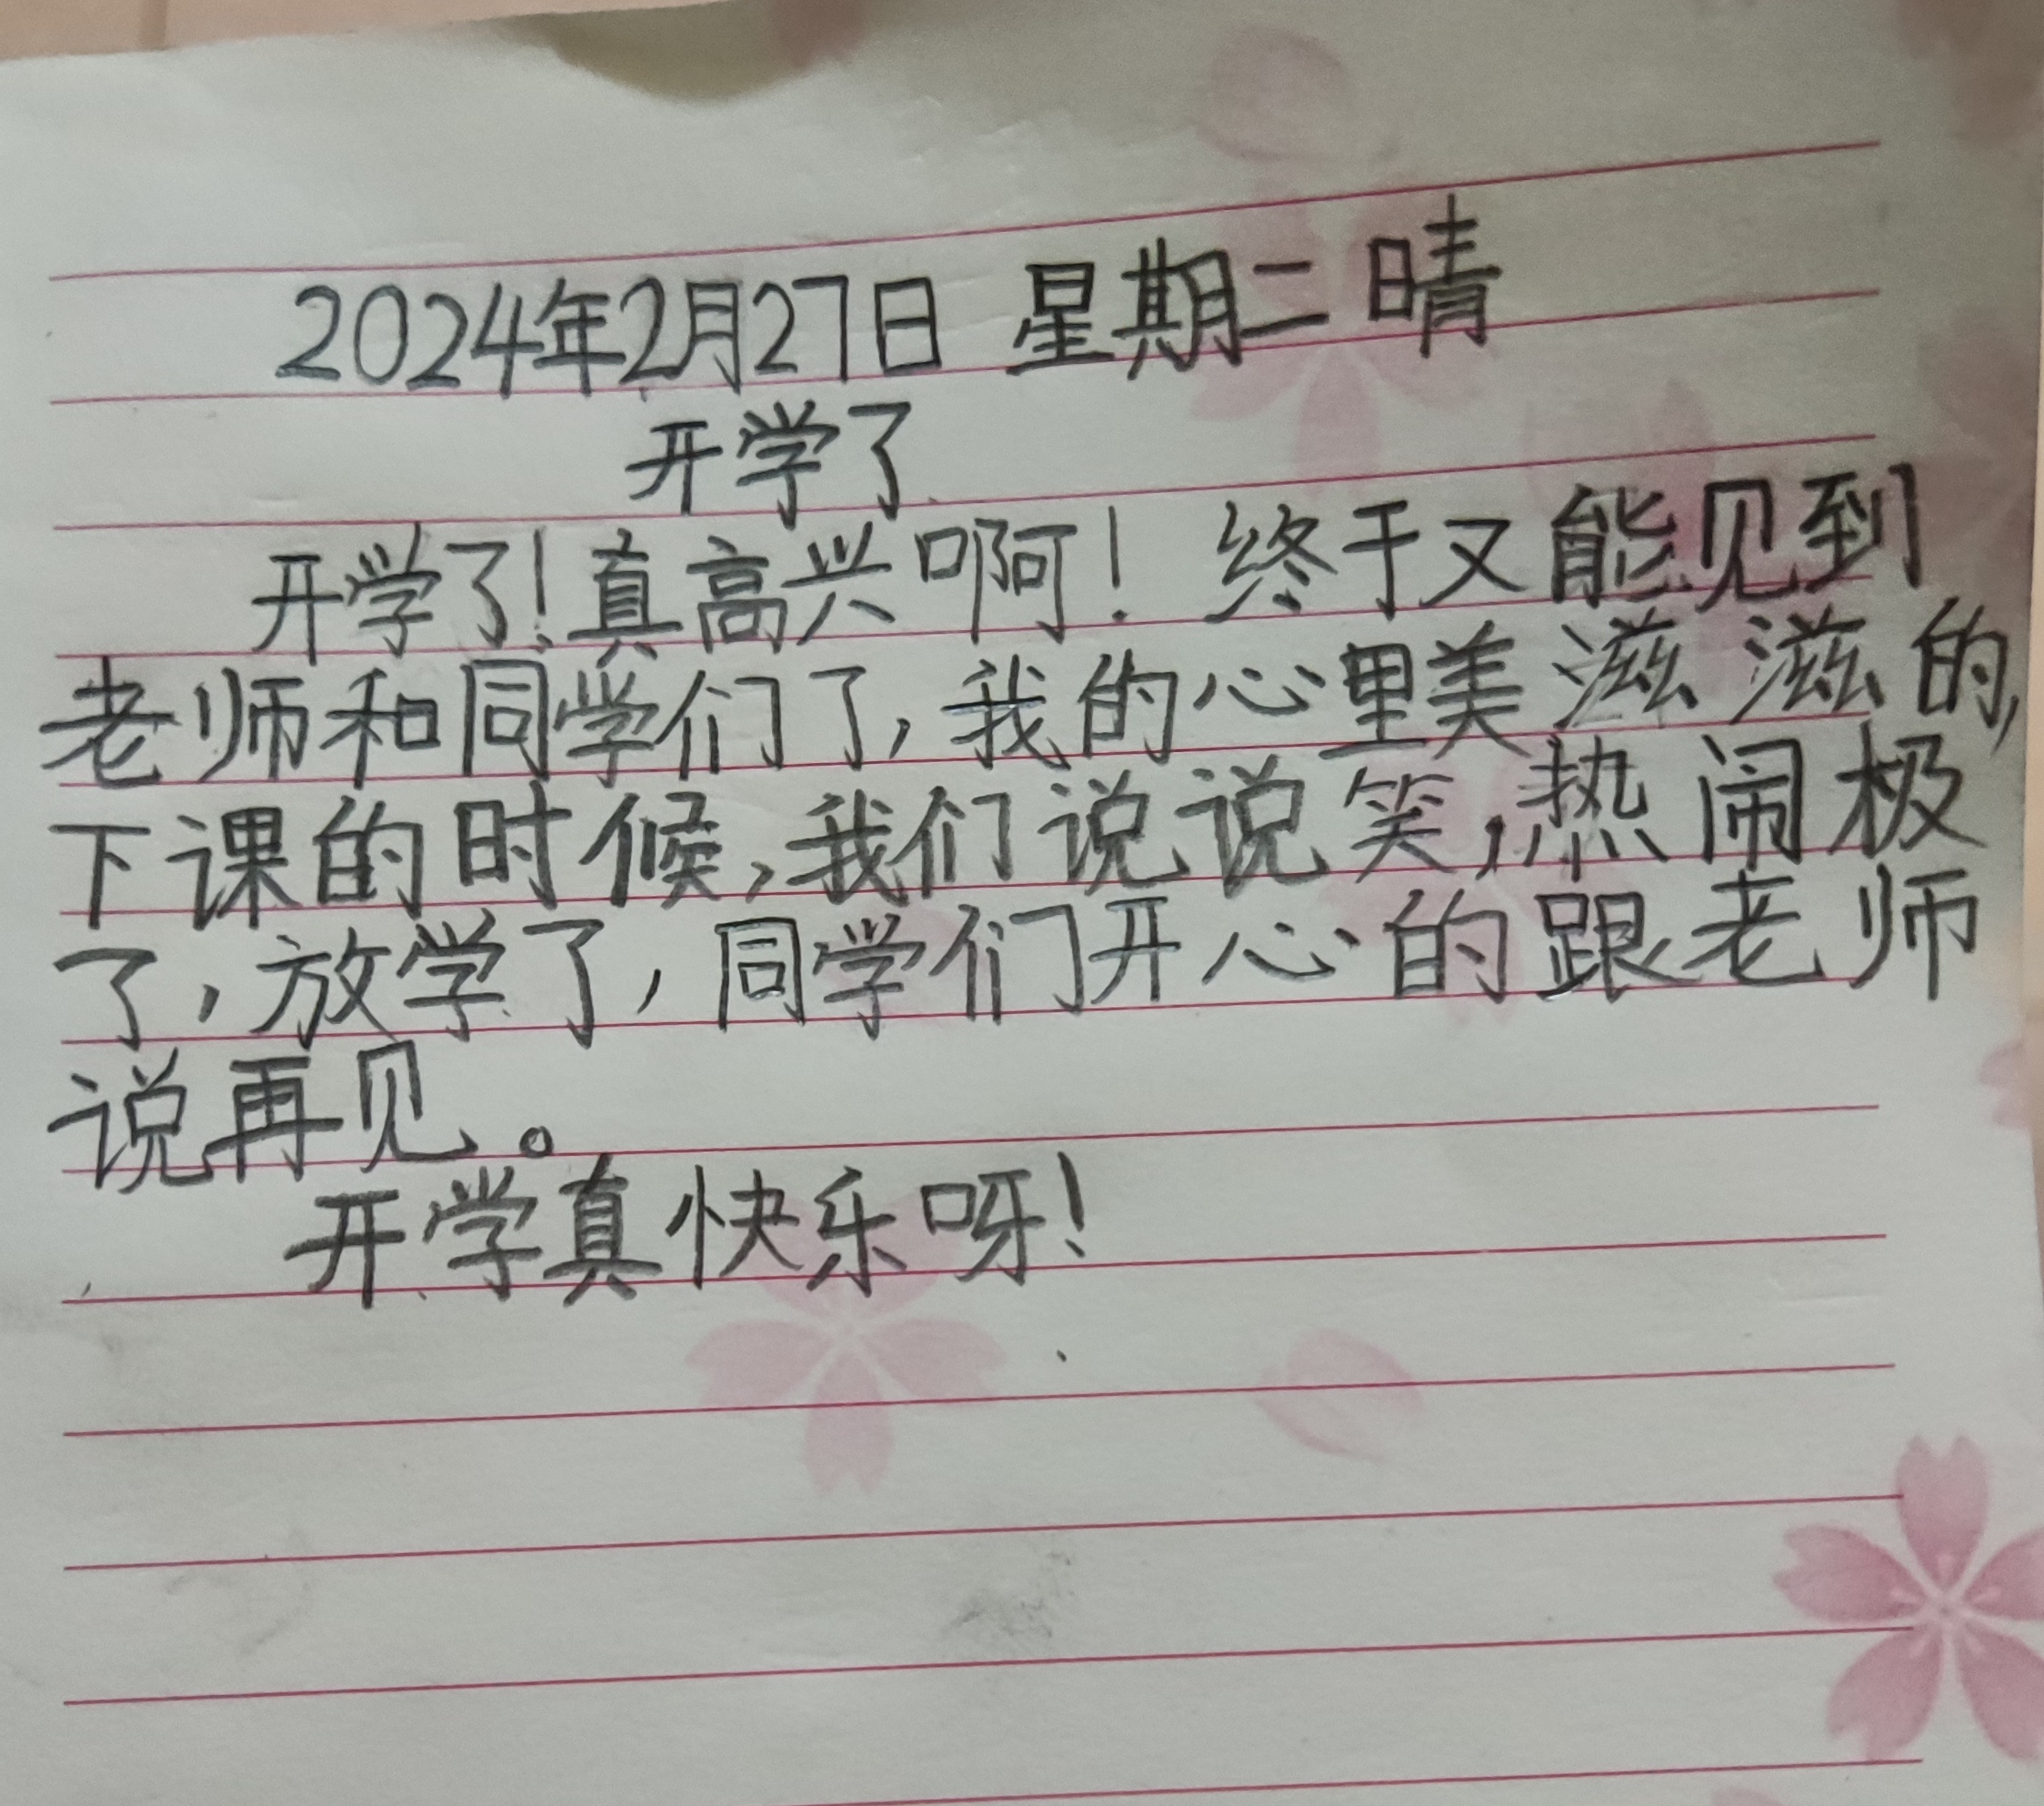 2024年2月27日 星期二 晴
开学了
开学了！真高兴啊！终于又能见到
老师和同学们了，我的心里美滋滋的，
下课的时候，我们说说笑，热闹极
了，放学了，同学们开心的跟老师
说再见。
开学真快乐呀！